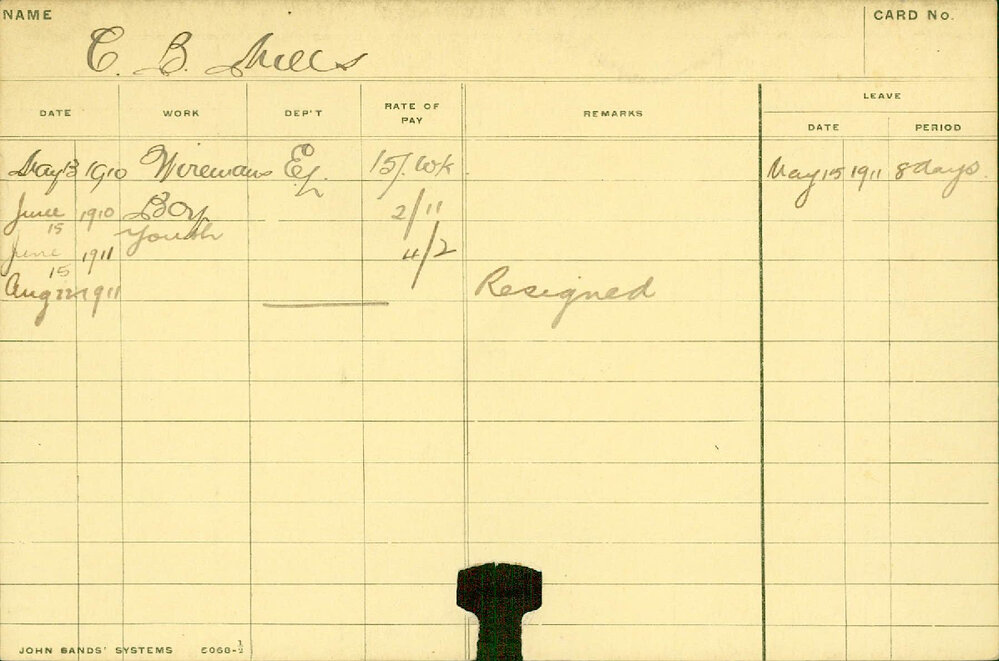 NAME
CARD No.
C. B. Mills
DATE WORK DEP'T RATE OF PAY REMARKS LEAVE
DATE PERIOD
May 13 1910 Wiremans Ep. 15/. Wk May 15 1911 8 days.
June 15 1910 Boy 2/11
Youth
June 15 1911 4/2
Aug 22 1911 Resigned
JOHN SANDS' SYSTEMS 5068-½